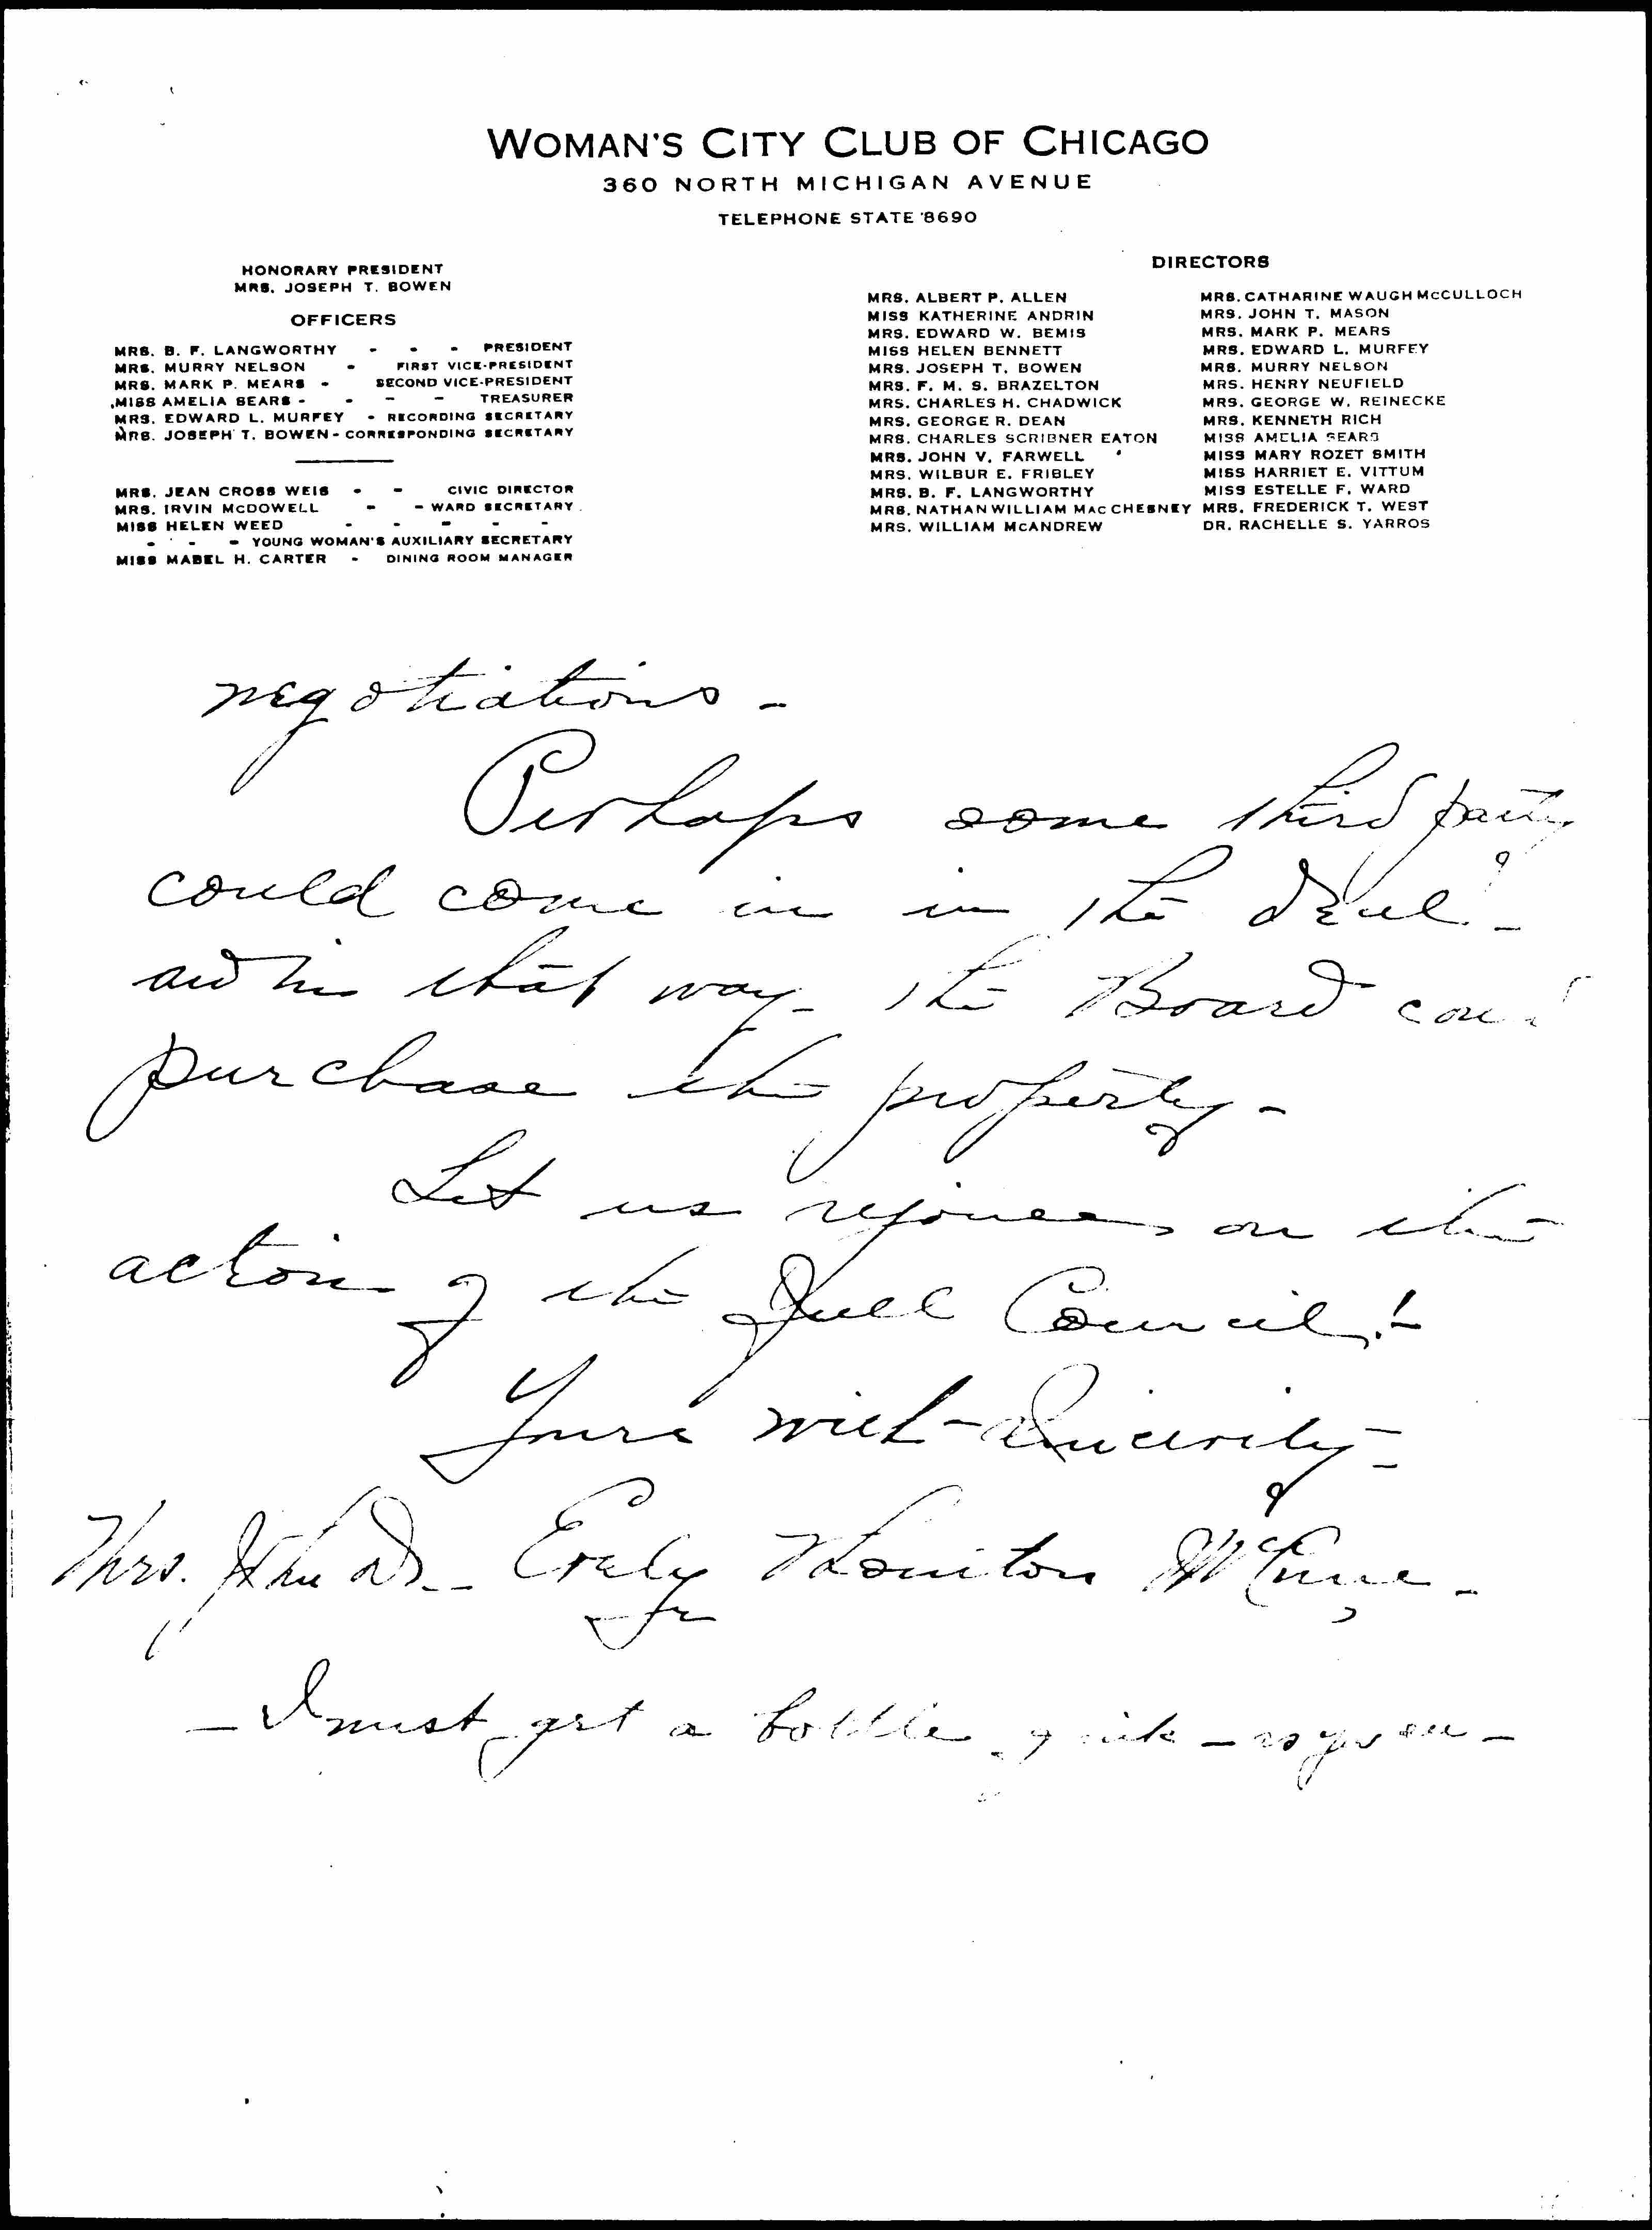 WOMAN'S CITY CLUB OF CHICAGO
360 NORTH MICHIGAN AVENUE
TELEPHONE STATE 8690
HONORARY PRESIDENT
MRS. JOSEPH T. BOWEN
OFFICERS
MRS. B. F. LANGWORTHY - - - PRESIDENT
MRS. MURRY NELSON - FIRST VICE-PRESIDENT
MRS. MARK P. MEARS - SECOND VICE-PRESIDENT
MISS AMELIA SEARS - - - - TREASURER
MRS. EDWARD L. MURFEY - RECORDING SECRETARY
MRS. JOSEPH T. BOWEN - CORRESPONDING SECRETARY
MRS. JEAN CROSS WEIS - - CIVIC DIRECTOR
MRS. IRVIN McDOWELL - - WARD SECRETARY
MISS HELEN WEED - - - - -
- - - YOUNG WOMAN'S AUXILIARY SECRETARY
MISS MABEL H. CARTER - DINING ROOM MANAGER
DIRECTORS
MRS. ALBERT P. ALLEN
MISS KATHERINE ANDRIN
MRS. EDWARD W. BEMIS
MISS HELEN BENNETT
MRS. JOSEPH T. BOWEN
MRS. F. M. S. BRAZELTON
MRS. CHARLES H. CHADWICK
MRS. GEORGE R. DEAN
MRS. CHARLES SCRIBNER EATON
MRS. JOHN V. FARWELL
MRS. WILBUR E. FRIBLEY
MRS. B. F. LANGWORTHY
MRS. NATHAN WILLIAM MACCHESNEY
MRS. WILLIAM McANDREW
MRS. CATHARINE WAUGH McCULLOCH
MRS. JOHN T. MASON
MRS. MARK P. MEARS
MRS. EDWARD L. MURFEY
MRS. MURRY NELSON
MRS. HENRY NEUFIELD
MRS. GEORGE W. REINECKE
MRS. KENNETH RICH
MISS AMELIA SEARS
MISS MARY ROZET SMITH
MISS HARRIET E. VITTUM
MISS ESTELLE F. WARD
MRS. FREDERICK T. WEST
DR. RACHELLE S. YARROS
negotiations -
Perhaps some third party
could come in in the deal -
and in that way - the Board could
purchase the property -
Let us rejoice on the
action of the full Council! -
Yours with sincerity -
Mrs. John D. -
- I must get a bottle of ink - as you see -